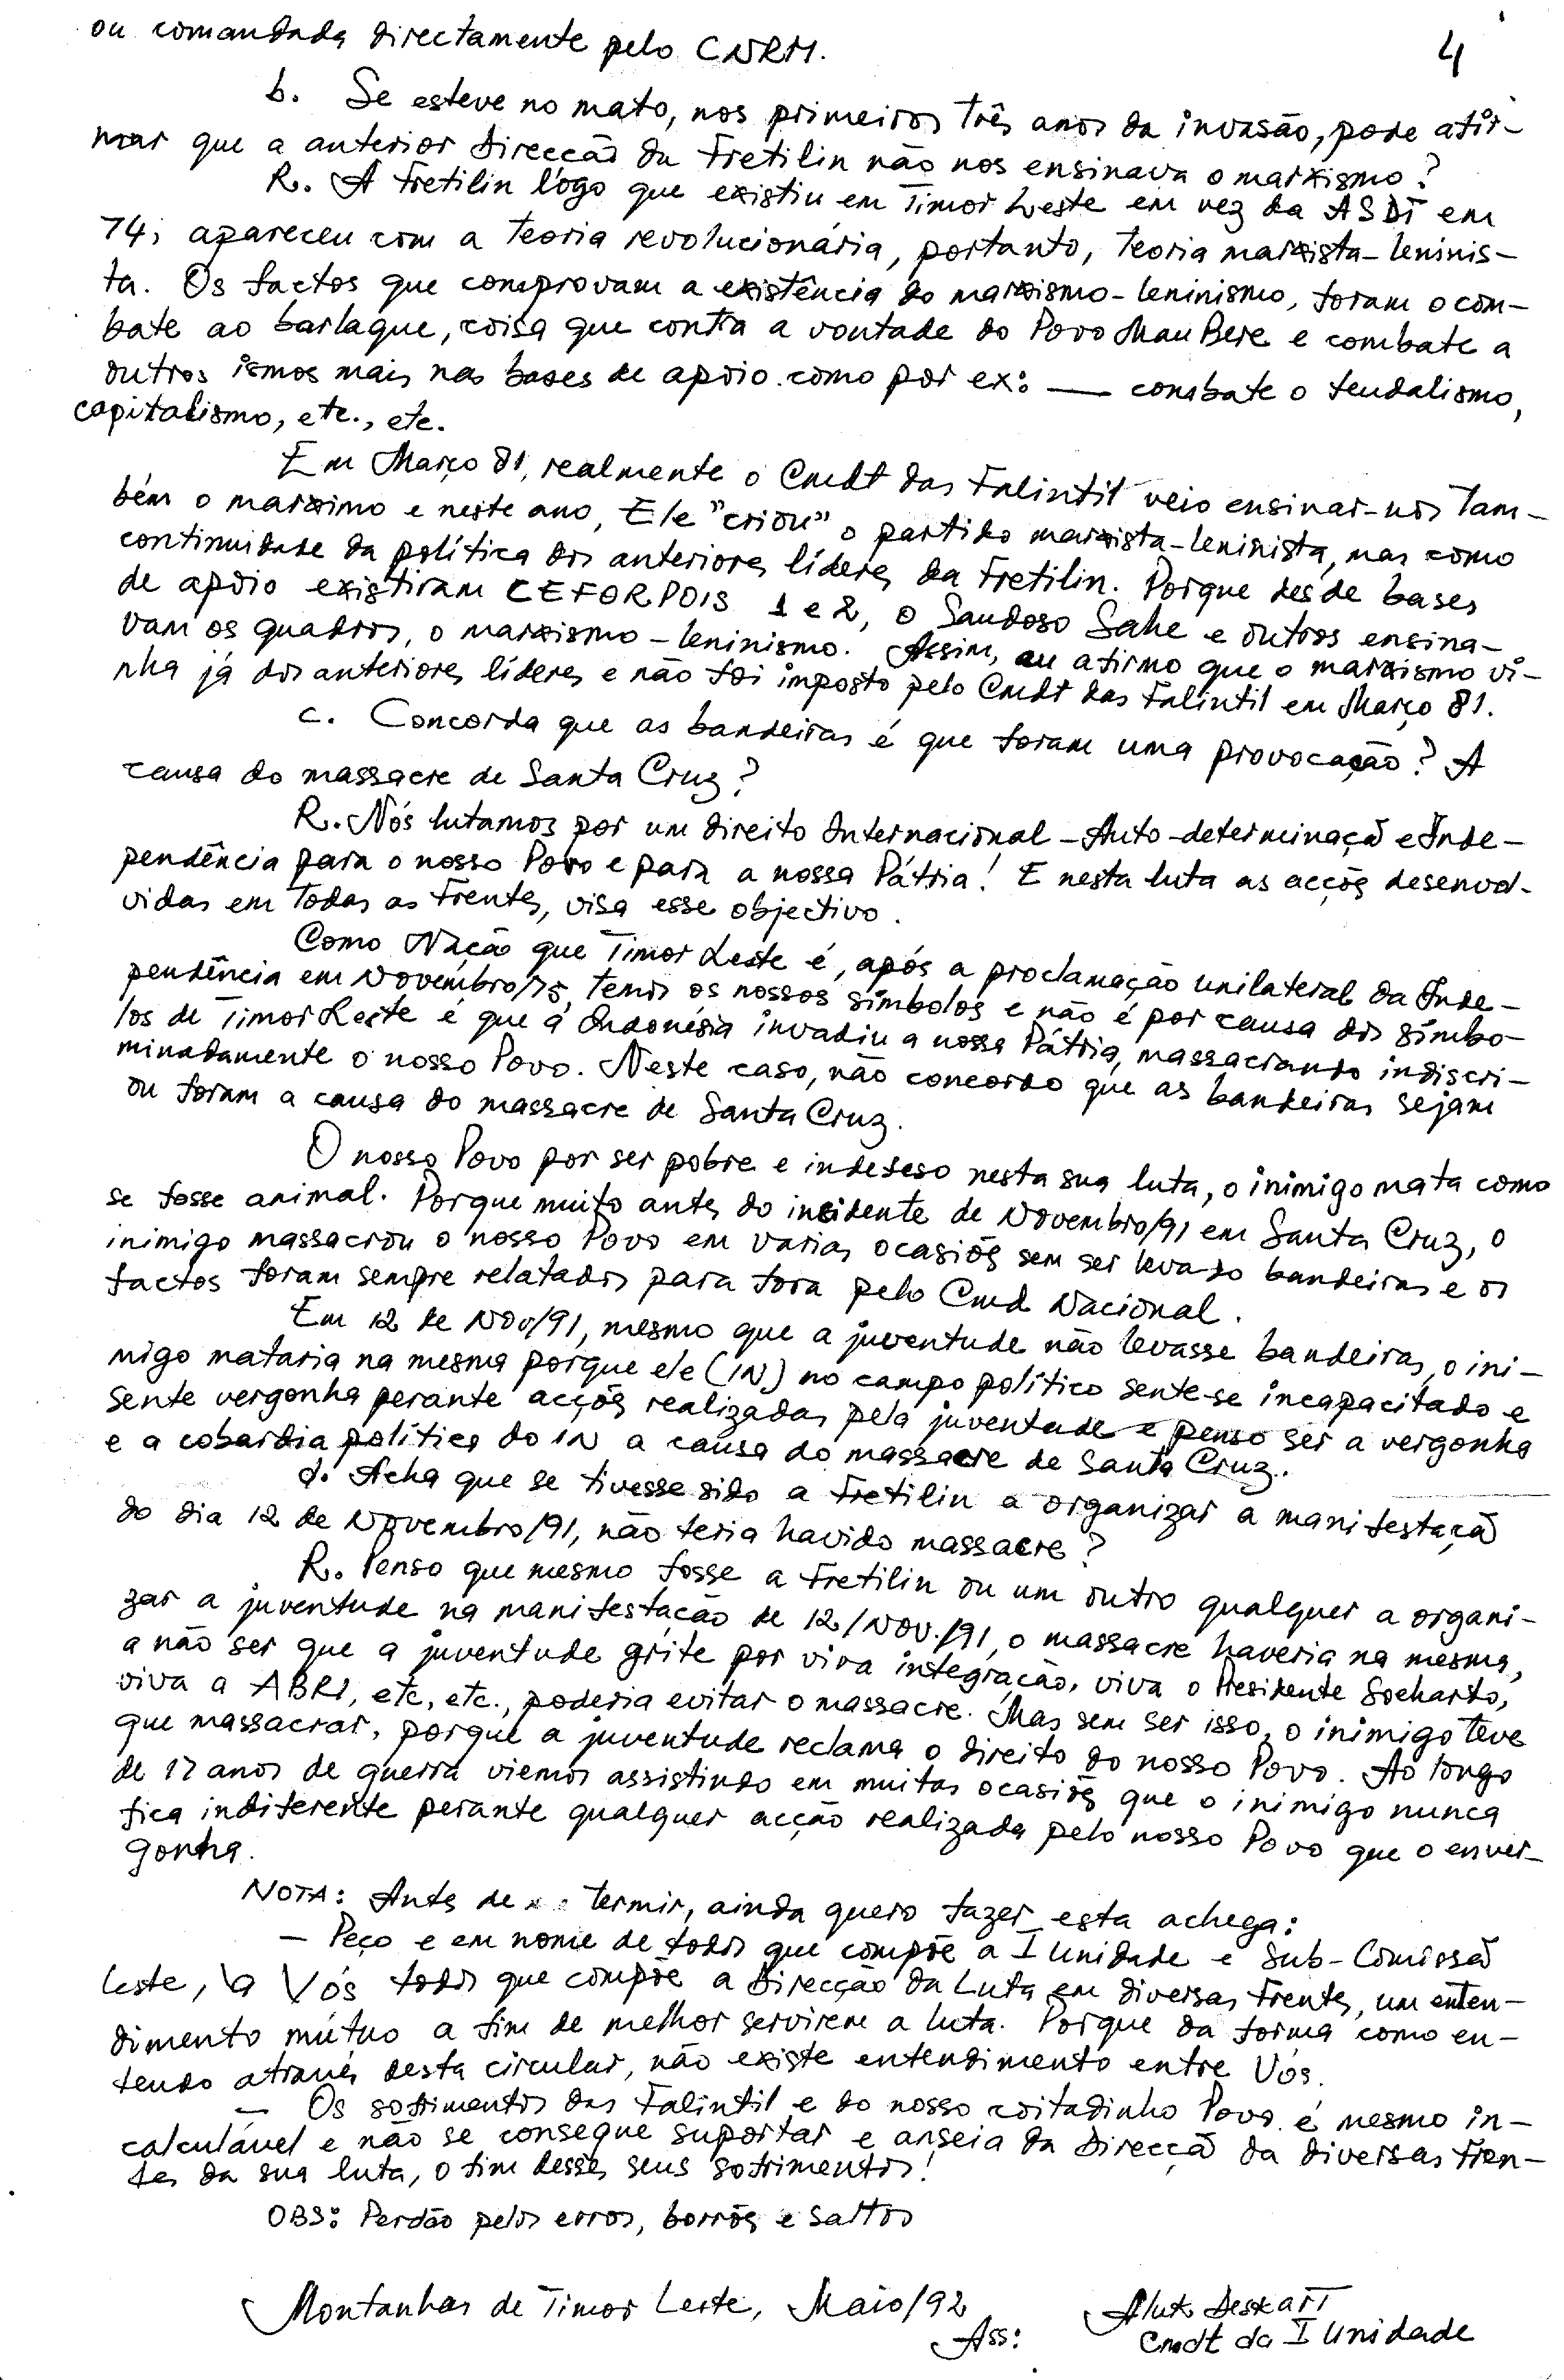 4
ou comandada directamente pelo CNRM.
b. Se esteve no mato, nos primeiros três anos da invasão, pode afir-
mar que a anterior Direcção da Fretilin não nos ensinava o marxismo?
R. A Fretilin logo que existiu em Timor Leste em vez da ASDT em
74, apareceu com a teoria revolucionária, portanto, teoria marxista-leninis-
ta. Os factos que comprovam a existência do marxismo-leninismo, foram o com-
bate ao barlaque, coisa que contra a vontade do Povo MauBere e combate a
outros ismos mais nas bases de apoio como por ex: — combate o feudalismo,
capitalismo, etc., etc.
Em Março 81, realmente o Cmdt das Falintil veio ensinar-nos tam-
bém o marximo e neste ano, Ele "criou" o partido marxista-leninista, mas como
continuidade da política dos anteriores líderes da Fretilin. Porque desde bases
de apoio existiram CEFORPOIS 1 e 2, o Saudoso Sahe e outros ensina-
vam os quadros, o marxismo-leninismo. Assim, eu afirmo que o marxismo vi-
nha já dos anteriores líderes e não foi imposto pelo Cmdt das Falintil em Março 81.
c. Concorda que as bandeiras é que foram uma provocação? A
causa do massacre de Santa Cruz?
R. Nós lutamos por um direito Internacional - Auto-determinaçã e Inde-
pendência para o nosso Povo e para a nossa Pátria! E nesta luta as acções desenvol-
vidas em todas as Frentes, visa esse objectivo.
Como Nação que Timor Leste é, após a proclamação unilateral da Inde-
pendência em Novembro/75, temos os nossos símbolos e não é por causa dos símbo-
los de Timor Leste é que a Indonésia invadiu a nossa Pátria, massacrando indiscri-
minadamente o nosso Povo. Neste caso, não concordo que as bandeiras sejam
ou foram a causa do massacre de Santa Cruz.
O nosso Povo por ser pobre e indefeso nesta sua luta, o inimigo mata como
se fosse animal. Porque muito antes do insidente de Novembro/91 em Santa Cruz, o
inimigo massacrou o nosso Povo em varias ocasiões sem ser levado bandeiras e os
factos foram sempre relatados para fora pelo Cmd Nacional.
Em 12 de Nov/91, mesmo que a juventude não levasse bandeiras, o ini-
migo mataria na mesma porque ele (IN) no campo político sente-se incapacitado e
sente vergonha perante acções realizadas pela juventude e penso ser a vergonha
e a cobardia política do IN a causa do massacre de Santa Cruz.
d. Acha que se tivesse sido a Fretilin a organizar a manifestaçã
do dia 12 de Novembro/91, não teria havido massacre?
R. Penso que mesmo fosse a Fretilin ou um outro qualquer a organi-
zar a juventude na manifestação de 12/Nov./91, o massacre haveria na mesma,
a não ser que a juventude grite por viva integração, viva o Presidente Soeharto,
viva a ABRI, etc, etc., poderia evitar o massacre. Mas sem ser isso, o inimigo teve
que massacrar, porque a juventude reclama o direito do nosso Povo. Ao longo
de 17 anos de guerra viemos assistindo em muitas ocasiões que o inimigo nunca
fica indiferente perante qualquer acção realizada pelo nosso Povo que o enver-
gonha.
NOTA: Antes de termir, ainda quero fazer esta achega:
- Peço e em nome de todos que compõe a I Unidade e Sub-Comissã
Leste, a Vós todos que compõe a Direcção da Luta em diversas Frentes, um enten-
dimento mútuo a fim de melhor servirem a luta. Porque da forma como en-
tendo através desta circular, não existe entendimento entre Vós.
- Os sofrimentos das Falintil e do nosso coitadinho Povo é mesmo in-
calculável e não se consegue suportar e anseia da Direcçã da diversas Fren-
tes da sua luta, o fim desses seus sofrimentos!
OBS: Perdão pelos erros, borrões e saltos
Montanhas de Timor Leste, Maio/92
Ass: Aluk Deskart
Cmdt da I Unidade